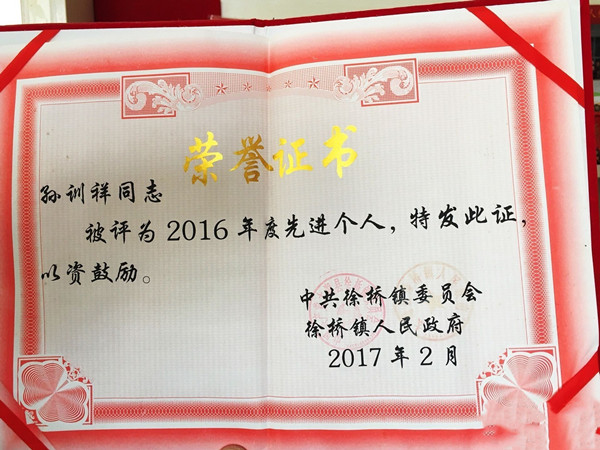 荣誉证书
孙训祥同志
被评为2016年度先进个人,特发此证,
以资鼓励。
中共徐桥镇委员会
徐桥镇人民政府
2017年2月